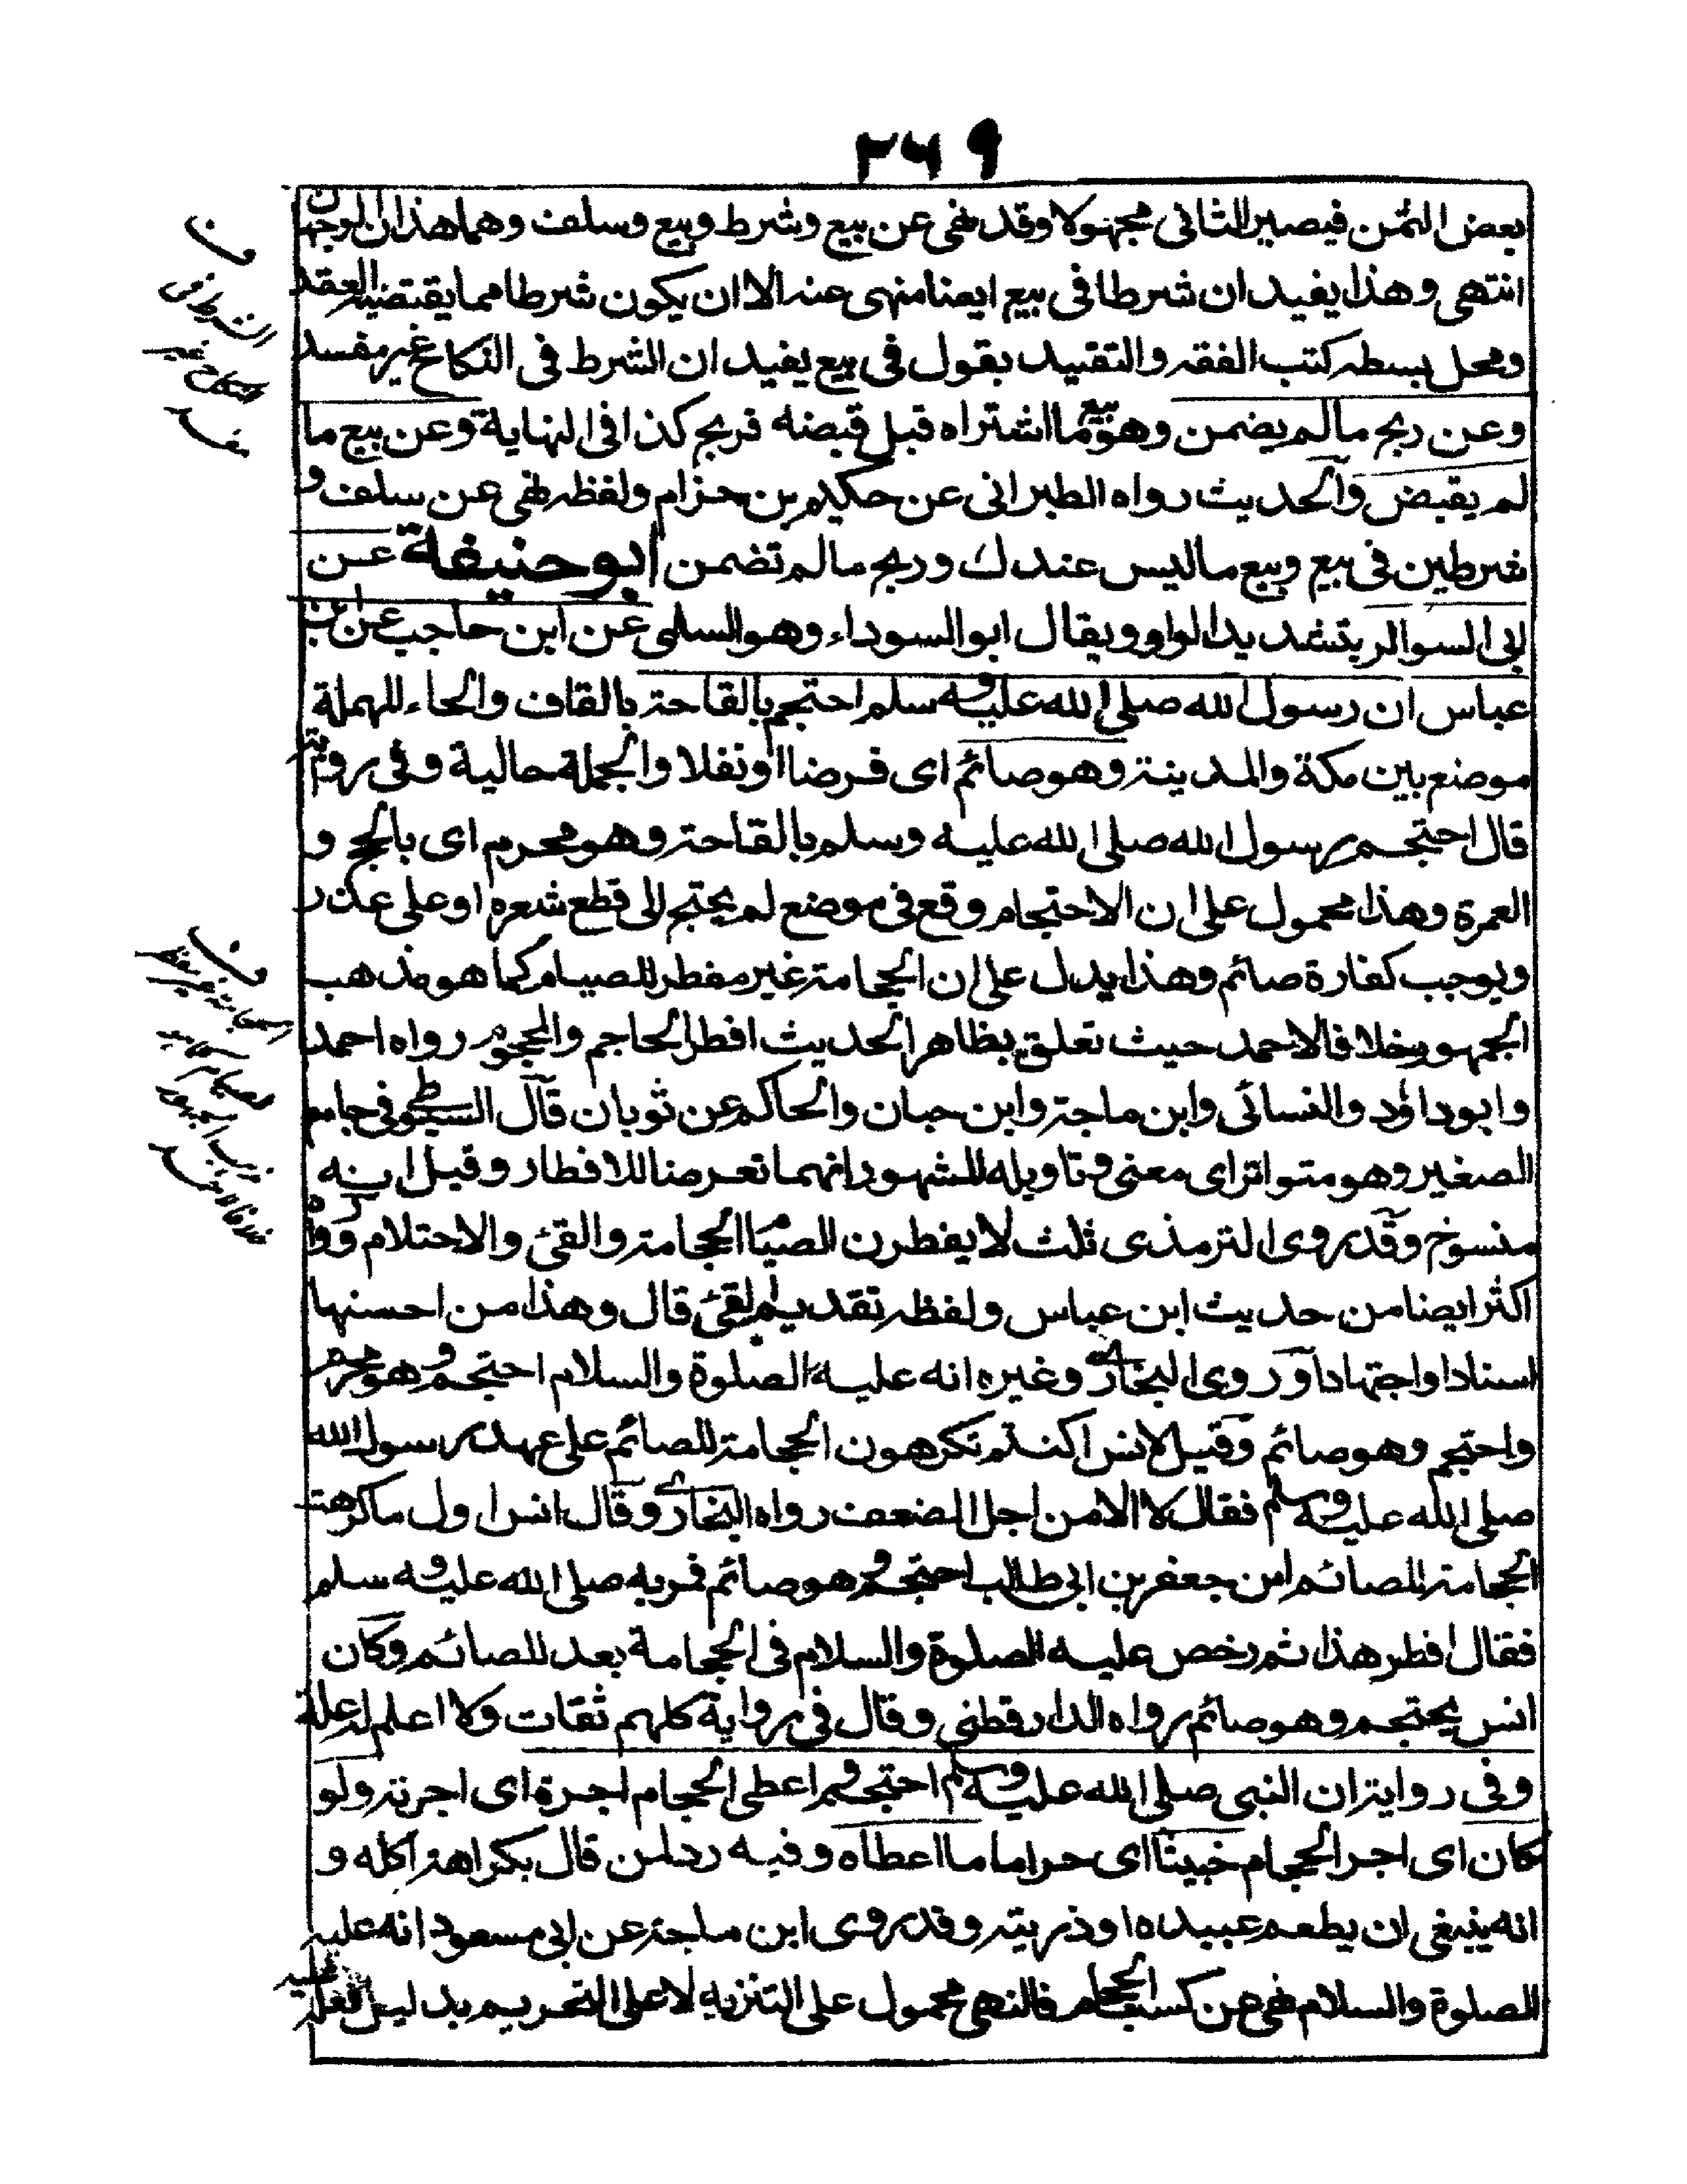 ٢٦٩
بعض الثمن فيصير الثانى مجهولا وقد نهى عن بيع وشرط وبيع وسلف وهما هذان الوجهان
انتهى وهذا يفيد ان شرطا فى بيع ايضا منهى عنه الا ان يكون شرطا مما يقتضيه العقد
ومحل بسطه كتب الفقه والتقييد بقول فى بيع يفيد ان الشرط فى النكاح غير مفسد
وعن ربح مالم يضمن وهو بيع ما اشتراه قبل قبضه فربح كذا فى النهاية وعن بيع ما
لم يقبض والحديث رواه الطبرانى عن حكيم بن حزام ولفظه نهى عن سلف و
شرطين فى بيع وبيع ماليس عندك وربح مالم تضمن ابوحنيفة عن
ابى السوار بتشديد الواو ويقال ابو السوداء وهو السلمى عن ابن حاجب عن ابن
عباس ان رسول الله صلى الله عليه وسلم احتجم بالقاحة بالقاف والحاء المهملة
موضع بين مكة والمدينة وهو صائم اى فرضا او نفلا والجملة حالية وفى رواية
قال احتجم رسول الله صلى الله عليه وسلم بالقاحة وهو محرم اى بالحج و
العمرة وهذا محمول على ان الاحتجام وقع فى موضع لم يحتج الى قطع شعره او على عذر
ويوجب كفارة صائم وهذا يدل على ان الحجامة غير مفطر للصيام كما هو مذهب
الجمهور خلافا لاحمد حيث تعلق بظاهر الحديث افطر الحاجم والمحجوم رواه احمد
وابو داؤد والنسائى وابن ماجة وابن حبان والحاكم عن ثوبان قال السيوطى فى جامع
الصغير وهو متواتر اى معنى وتاويله المشهور انهما تعرضا للافطار وقيل انه
منسوخ وقد روى الترمذى ثلث لا يفطرن الصيام الحجامة والقئ والاحتلام ورواه
اكثر ايضا من حديث ابن عباس ولفظه تقديم القئ قال وهذا من احسنها
اسنادا واجتهادا وروى البخارى وغيره انه عليه الصلوة والسلام احتجم وهو محرم
واحتجم وهو صائم وقيل لانس اكنتم تكرهون الحجامة للصائم على عهد رسول الله
صلى الله عليه وسلم فقال لا الا من اجل الضعف رواه البخارى وقال انس اول ما كرهت
الحجامة للصائم ان جعفر بن ابى طالب احتجم وهو صائم فمر به صلى الله عليه وسلم
فقال افطر هذا ثم رخص عليه الصلوة والسلام فى الحجامة بعد للصائم وكان
انس يحتجم وهو صائم رواه الدارقطنى وقال فى رواية كلهم ثقات ولا اعلم له علة
وفى رواية ان النبى صلى الله عليه وسلم احتجم واعطى الحجام اجرة اى اجرته ولو
كان اى اجر الحجام خبيثا اى حراما ما اعطاه وفيه رد لمن قال بكراهة اكله و
انه ينبغى ان يطعم عبيده او ذريته وقد روى ابن ماجة عن ابى مسعود انه عليه
الصلوة والسلام نهى عن كسب الحجام فالنهى محمول على التنزيه لا على التحريم بدليل فعله عليه
ف
الشرط فى
النكاح غير
مفسد
ف
الحجامة غير مفطر
للصيام كما هو
مذهب الجمهور
خلافا لاحمد